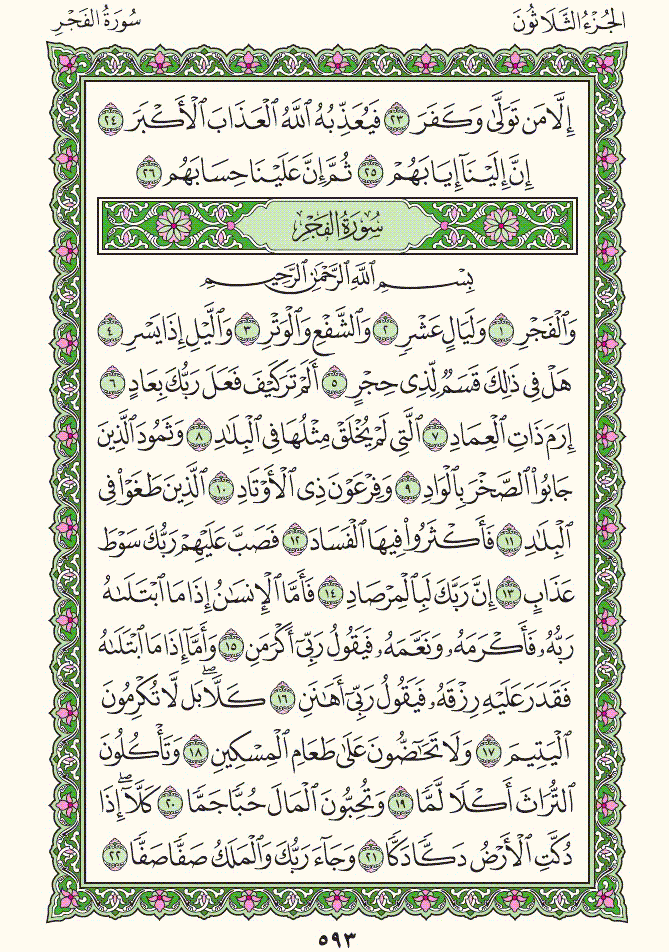 الجُزْءُ الثَّلَاثُونَ سُورَةُ الفَجْرِ
إِلَّا مَن تَوَلَّىٰ وَكَفَرَ ٢٣ فَيُعَذِّبُهُ ٱللَّهُ ٱلْعَذَابَ ٱلْأَكْبَرَ ٢٤
إِنَّ إِلَيْنَآ إِيَابَهُمْ ٢٥ ثُمَّ إِنَّ عَلَيْنَا حِسَابَهُم ٢٦
سُورَةُ الفَجْرِ
بِسْمِ ٱللَّهِ ٱلرَّحْمَٰنِ ٱلرَّحِيمِ
وَٱلْفَجْرِ ١ وَلَيَالٍ عَشْرٍ ٢ وَٱلشَّفْعِ وَٱلْوَتْرِ ٣ وَٱلَّيْلِ إِذَا يَسْرِ ٤
هَلْ فِى ذَٰلِكَ قَسَمٌ لِّذِى حِجْرٍ ٥ أَلَمْ تَرَ كَيْفَ فَعَلَ رَبُّكَ بِعَادٍ ٦
إِرَمَ ذَاتِ ٱلْعِمَادِ ٧ ٱلَّتِى لَمْ يُخْلَقْ مِثْلُهَا فِى ٱلْبِلَٰدِ ٨ وَثَمُودَ ٱلَّذِينَ
جَابُوا۟ ٱلصَّخْرَ بِٱلْوَادِ ٩ وَفِرْعَوْنَ ذِى ٱلْأَوْتَادِ ١٠ ٱلَّذِينَ طَغَوْا۟ فِى
ٱلْبِلَٰدِ ١١ فَأَكْثَرُوا۟ فِيهَا ٱلْفَسَادَ ١٢ فَصَبَّ عَلَيْهِمْ رَبُّكَ سَوْطَ
عَذَابٍ ١٣ إِنَّ رَبَّكَ لَبِٱلْمِرْصَادِ ١٤ فَأَمَّا ٱلْإِنسَٰنُ إِذَا مَا ٱبْتَلَىٰهُ
رَبُّهُۥ فَأَكْرَمَهُۥ وَنَعَّمَهُۥ فَيَقُولُ رَبِّىٓ أَكْرَمَنِ ١٥ وَأَمَّآ إِذَا مَا ٱبْتَلَىٰهُ
فَقَدَرَ عَلَيْهِ رِزْقَهُۥ فَيَقُولُ رَبِّىٓ أَهَٰنَنِ ١٦ كَلَّا ۖ بَل لَّا تُكْرِمُونَ
ٱلْيَتِيمَ ١٧ وَلَا تَحَٰٓضُّونَ عَلَىٰ طَعَامِ ٱلْمِسْكِينِ ١٨ وَتَأْكُلُونَ
ٱلتُّرَاثَ أَكْلًا لَّمًّا ١٩ وَتُحِبُّونَ ٱلْمَالَ حُبًّا جَمًّا ٢٠ كَلَّآ ۖ إِذَا
دُكَّتِ ٱلْأَرْضُ دَكًّا دَكًّا ٢١ وَجَآءَ رَبُّكَ وَٱلْمَلَكُ صَفًّا صَفًّا ٢٢
٥٩٣